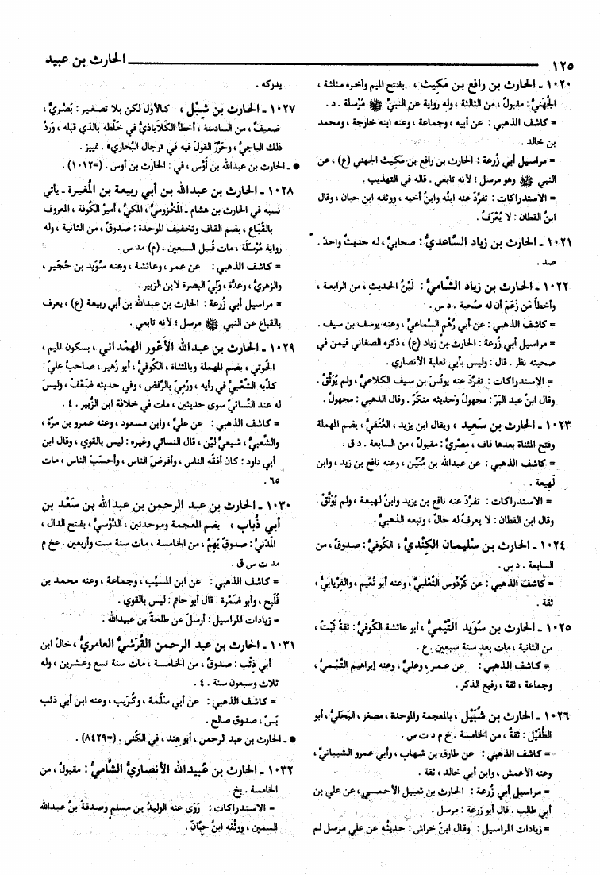 ١٢٥
الحارث بن عبيد
١٠٢٠ ـ الحارث بن رافع بن مَكِيث ، بفتح الميم وآخره مثلثة ،
الجُهَني : مقبول ، من الثالثة ، وله رواية عن النبي ﷺ مُرسَلة . د .
= كاشف الذهبي : عن أبيه ، وجماعة ، وعنه ابنه خارجة ، ومحمد
بن خالد .
= مراسيل أبي زُرعة : الحارث بن رافع بن مَكيث الجهني (ع) ، عن
النبي ﷺ وهو مرسل ؛ لأنه تابعي . قاله في التهذيب .
= الاستدراكات : تفرَّدَ عنه ابنُه وابنُ أخيه ، ووثقه ابن حبان ، وقال
ابنُ القطان : لا يُعرَفُ .
١٠٢١ ـ الحارث بن زياد الساعديُّ : صحابيٌّ ، له حديثٌ واحدٌ .
صد .
١٠٢٢ ـ الحارث بن زياد الشاميُّ : لَيِّنُ الحديث ، من الرابعة ،
وأخطأ مَن زَعَم أن له صُحبة . د س .
= كاشف الذهبي : عن أبي رُهْم السَّماعي ، وعنه يوسف بن سيف .
= مراسيل أبي زُرعة : الحارث بنُ زياد (ع) ، ذكره الصغاني فيمن في
صحبته نظر . قال : وليس بأبي نعاية الأنصاري .
= الاستدراكات : تفرَّدَ عنه يونُسُ بن سيف الكلاعي ، ولم يُوَثَّقْ .
وقال ابنُ عبد البَرّ : مجهولٌ وحديثه منكَرٌ . وقال الذهبي : مجهول .
١٠٢٣ ـ الحارث بن سعيد ، ويقال ابن يزيد ، العُتَقي ، بضم المهملة
وفتح المثناة بعدها قاف ، مصريٌّ : مقبول ، من السابعة . د ق .
= كاشف الذهبي : عن عبدالله بن مُنَيْن ، وعنه نافع بن زيد ، وابن
لَهيعة .
= الاستدراكات : تفرَّدَ عنه نافع بن يزيد وابنُ لَهيعة ، ولم يُوَثَّقْ .
وقال ابن القطان : لا يعرف له حال ، وتبعه الذهبيُّ .
١٠٢٤ ـ الحارث بن سليمان الكِنْديُّ ، الكوفيُّ : صدوقٌ ، من
السابعة . د س .
= كاشف الذهبي : عن كُردُوس الثعلبي ، وعنه أبو نُعَيم ، والفِرْيابي ،
ثقة .
١٠٢٥ ـ الحارث بن سُوَيْد التَّيْميُّ ، أبو عائشة الكوفيُّ : ثقةٌ ثَبْتٌ ،
من الثانية ، مات بعد سنة سبعين . ع .
= كاشف الذهبي : عن عمر ، وعليّ ، وعنه إبراهيم التَّيْمي ،
وجماعة ، ثقة ، رفيع الذكر .
١٠٢٦ ـ الحارث بن شُبَيْل ، بالمعجمة والموحدة ، مصغر ، البَجَلي ، أبو
الطُّفَيْل : ثقةٌ ، من الخامسة . خ م د ت س .
= كاشف الذهبي : عن طارق بن شهاب ، وأبي عمرو الشيباني ،
وعنه الأعمش ، وابن أبي خالد ، ثقة .
= مراسيل أبي زُرعة : الحارث بن شبيل الأحمسي ، عن علي بن
أبي طالب . قال أبو زرعة : مرسل .
= زيادات المراسيل : وقال ابنُ خراش : حديثُه عن علي مرسل لم
يدركه .
١٠٢٧ ـ الحارث بن شِبْل ، كالأول لكن بلا تصغير : بَصْريٌّ ،
ضعيف ، من السادسة ، أخطأ الكَلاباذي في خلطه بالذي قبله ، ورَدَّ
ذلك الباجيُّ ، وحَرَّرَ القول فيه في «رجال البُخاري» . تمييز .
● ـ الحارث بن عبدالله بن أوْس ، في : الحارث بن أوس . (=١٠١٢) .
١٠٢٨ ـ الحارث بن عبدالله بن أبي ربيعة بن المُغيرة ـ يأتي
نسبه في الحارث بن هشام ـ المَخْزوميُّ ، المكيُّ ، أميرُ الكوفة ، المعروف
بالقُبَاع ، بضم القاف وتخفيف الموحدة : صدوقٌ ، من الثانية ، وله
رواية مُرْسَلة ، مات قُبيل السبعين . (م) مد س .
= كاشف الذهبي : عن عمر ، وعائشة ، وعنه سُوَيْد بن حُجَير ،
والزهريُّ ، وعِدَّة ، وَلِيَ البصرة لابن الزبير .
= مراسيل أبي زُرعة : الحارث بن عبدالله بن أبي ربيعة (ع) ، يعرف
بالقباع عن النبي ﷺ مرسل ؛ لأنه تابعي .
١٠٢٩ ـ الحارث بن عبدالله الأعْوَر الهمْداني ، بسكون الميم ،
الحُوتي ، بضم المهملة وبالمثناة ، الكُوفيُّ ، أبو زهير ، صاحبُ عليّ :
كذَّبه الشَّعْبي في رأيه ، ورُمِيَ بالرَّفْض ، وفي حديثه ضَعْفٌ ، وليسَ
له عند النَّسائيّ سوى حديثين ، مات في خلافة ابن الزُّبير . ٤ .
= كاشف الذهبي : عن عليّ ، وابن مسعود ، وعنه عمرو بن مرة ،
والشَّعْبيُّ ، شيعيٌّ لَيِّن ، قال النسائي وغيره : ليس بالقوي ، وقال ابن
أبي داود : كانَ أفْقَه الناس ، وأفرضَ الناس ، وأحسَبَ الناس ، مات
٦٥ .
١٠٣٠ ـ الحارث بن عبد الرحمن بن عبدالله بن سَعْد بن
أبي ذُباب ، بضم المعجمة وموحدتين ، الدَّوْسيُّ ، بفتح الدال ،
المَدَنيُّ : صدوق يَهِمُ ، من الخامسة ، مات سنة ست وأربعين . عخ م
مد ت س ق .
= كاشف الذهبي : عن ابن المسيَّب ، وجماعة ، وعنه محمد بن
فُلَيح ، وأبو ضَمْرة . قال أبو حاتم : ليس بالقوي .
= زيادات المراسيل : أرسلَ عن طلحة بن عبيدالله .
١٠٣١ ـ الحارث بن عبد الرحمن القُرَشيُّ العامريُّ ، خالُ ابن
أبي ذئب : صدوقٌ ، من الخامسة ، مات سنة تسع وعشرين ، وله
ثلاث وسبعون سنة . ٤ .
= كاشف الذهبي : عن أبي سَلَمة ، وكُرَيب ، وعنه ابن أبي ذئب
بَسْ ، صدوق صالح .
● ـ الحارث بن عبد الرحمن ، أبو هند ، في الكُنى . (=٨٤٢٩) .
١٠٣٢ ـ الحارث بن عُبيدالله الأنصاريُّ الشاميُّ : مقبول ، من
الخامسة . بخ .
= الاستدراكات : رَوَى عنه الوليدُ بن مسلم وصدقةُ بن عبدالله
السمين ، ووثَّقه ابنُ حِبَّان .